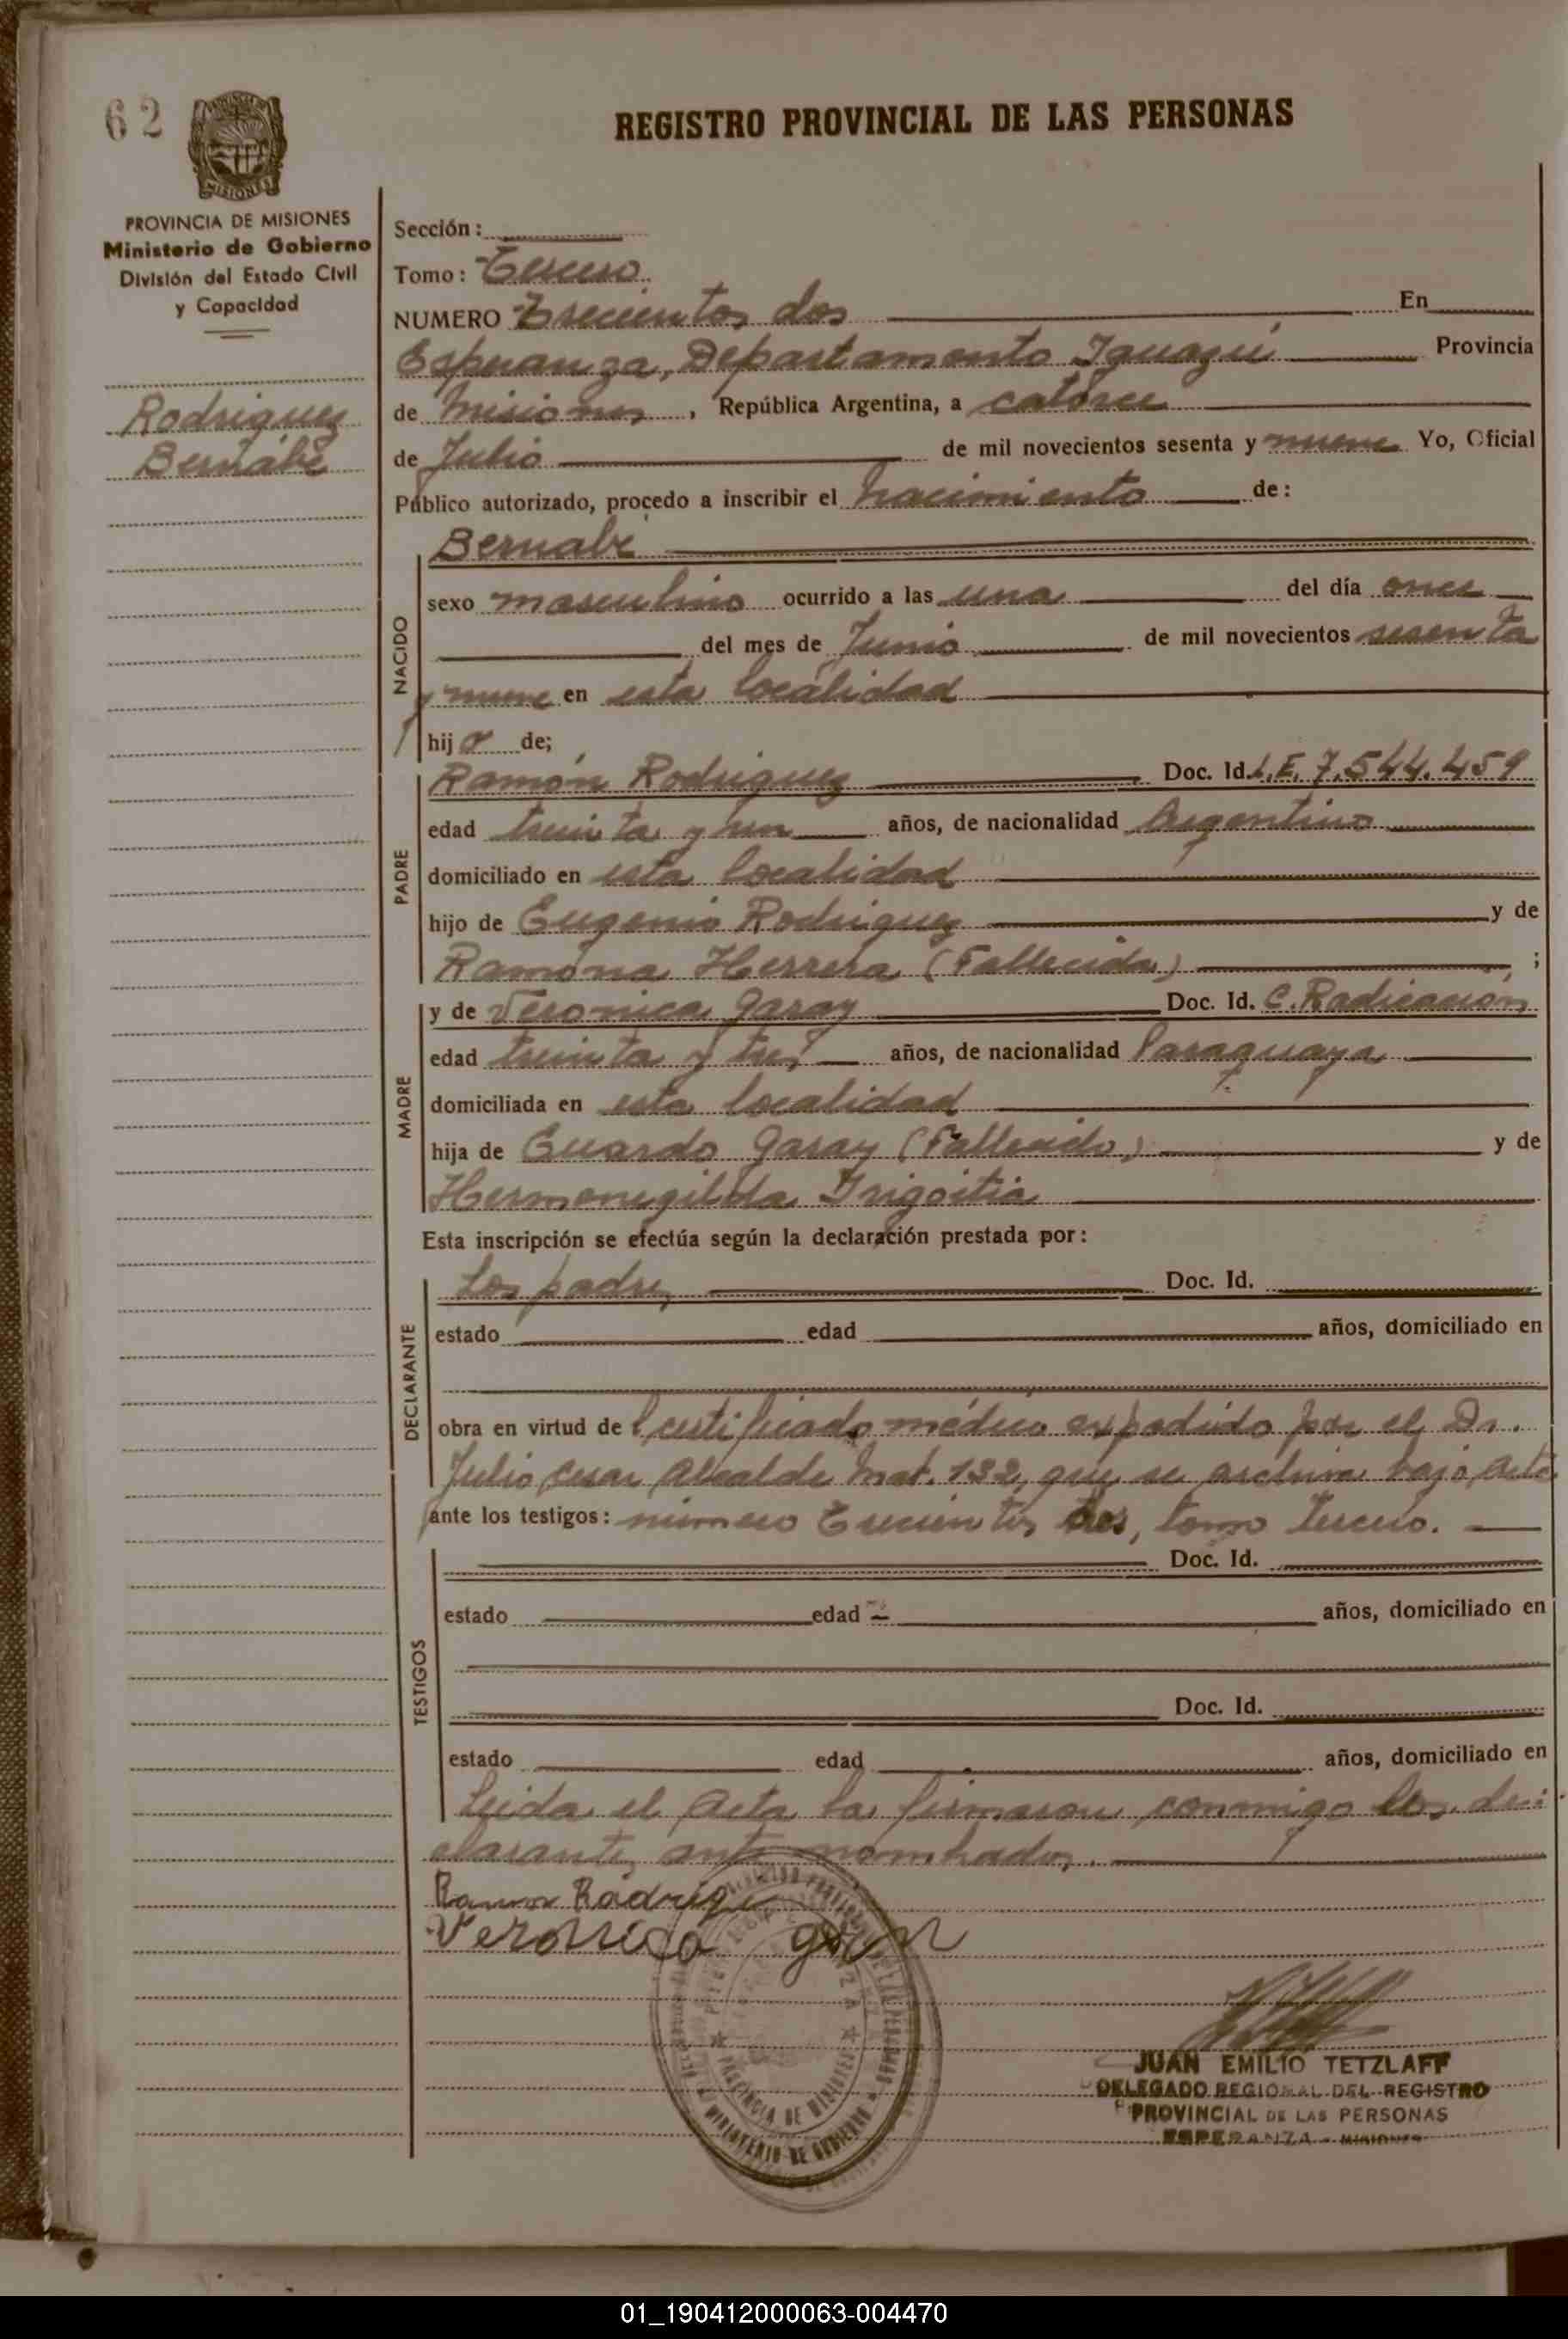 62
REGISTRO PROVINCIAL DE LAS PERSONAS
MISIONES
PROVINCIA DE MISIONES
Ministerio de Gobierno
División del Estado Civil
y Capacidad
Rodriguez
Bernabé
Sección:
Tomo: Tercero
NUMERO Trecientos dos En
Esperanza, Departamento Iguazú Provincia
de Misiones, República Argentina, a catorce
de Julio de mil novecientos sesenta y nueve Yo, Oficial
Público autorizado, procedo a inscribir el nacimiento de:
Bernabé
NACIDO
sexo masculino ocurrido a las una del día once
del mes de Junio de mil novecientos sesenta
y nueve en esta localidad
hijo de;
PADRE
Ramón Rodriguez Doc. Id. L.E. 7.544.459
edad treinta y un años, de nacionalidad Argentino
domiciliado en esta localidad
hijo de Eugenio Rodriguez y de
Ramona Herrera (Fallecida) ;
MADRE
y de Veronica Garay Doc. Id. C. Radicación
edad treinta y tres años, de nacionalidad Paraguaya
domiciliada en esta localidad
hija de Euardo Garay (Fallecido) y de
Hermenegilda Irigoitia
Esta inscripción se efectúa según la declaración prestada por:
DECLARANTE
Los padres Doc. Id.
estado edad años, domiciliado en
obra en virtud de certificado médico expedido por el Dr.
Julio Cesar Alcalde Mat. 132, que se archiva bajo acta
ante los testigos: número Trecientos dos, tomo Tercero.
TESTIGOS
Doc. Id.
estado edad años, domiciliado en
Doc. Id.
estado edad años, domiciliado en
Leida el Acta la firmaron conmigo los de-
clarantes ante nombrados.
Ramon Rodrigu
Veronica
PROVINCIA DE MISIONES
MINISTERIO DE GOBIERNO
JUAN EMILIO TETZLAFF
DELEGADO REGIONAL DEL REGISTRO
PROVINCIAL DE LAS PERSONAS
ESPERANZA - MISIONES
01_190412000063-004470